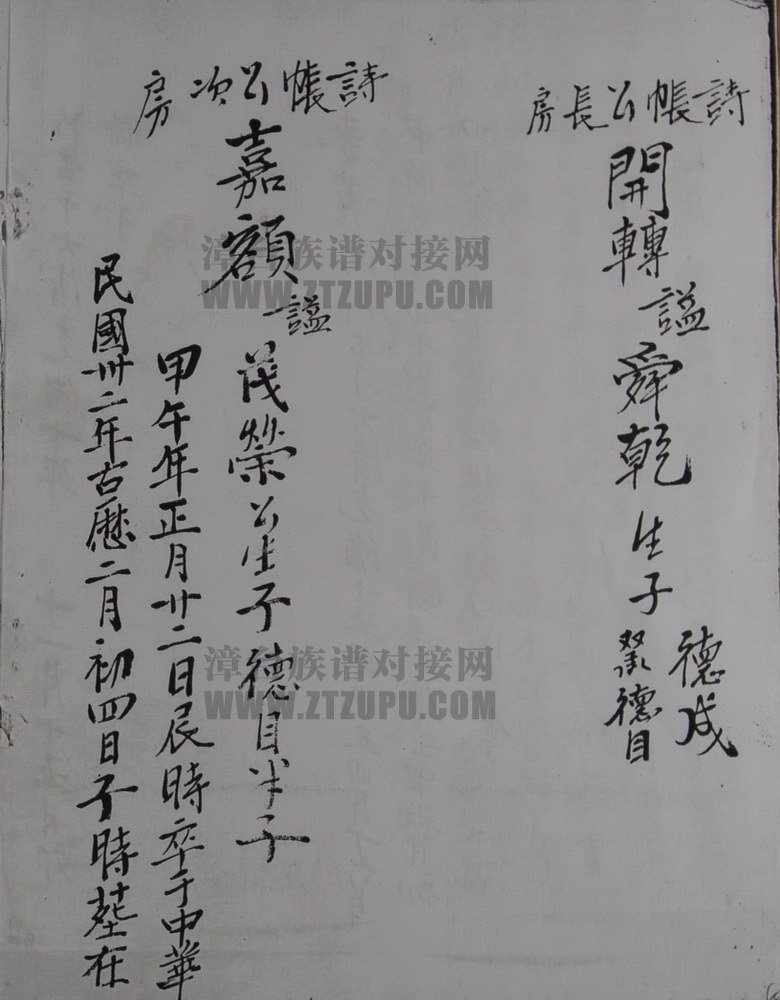 詩帳公長房
開轉謚舜乾生子
德成
双承德目
詩帳公次房
嘉額謚茂榮公生子德目半子
甲午年正月廿二日辰時卒于中華
民國卅二年古曆二月初四日子時塟在
漳台族谱对接网
WWW.ZTZUPU.COM
漳台族谱对接网
WWW.ZTZUPU.COM